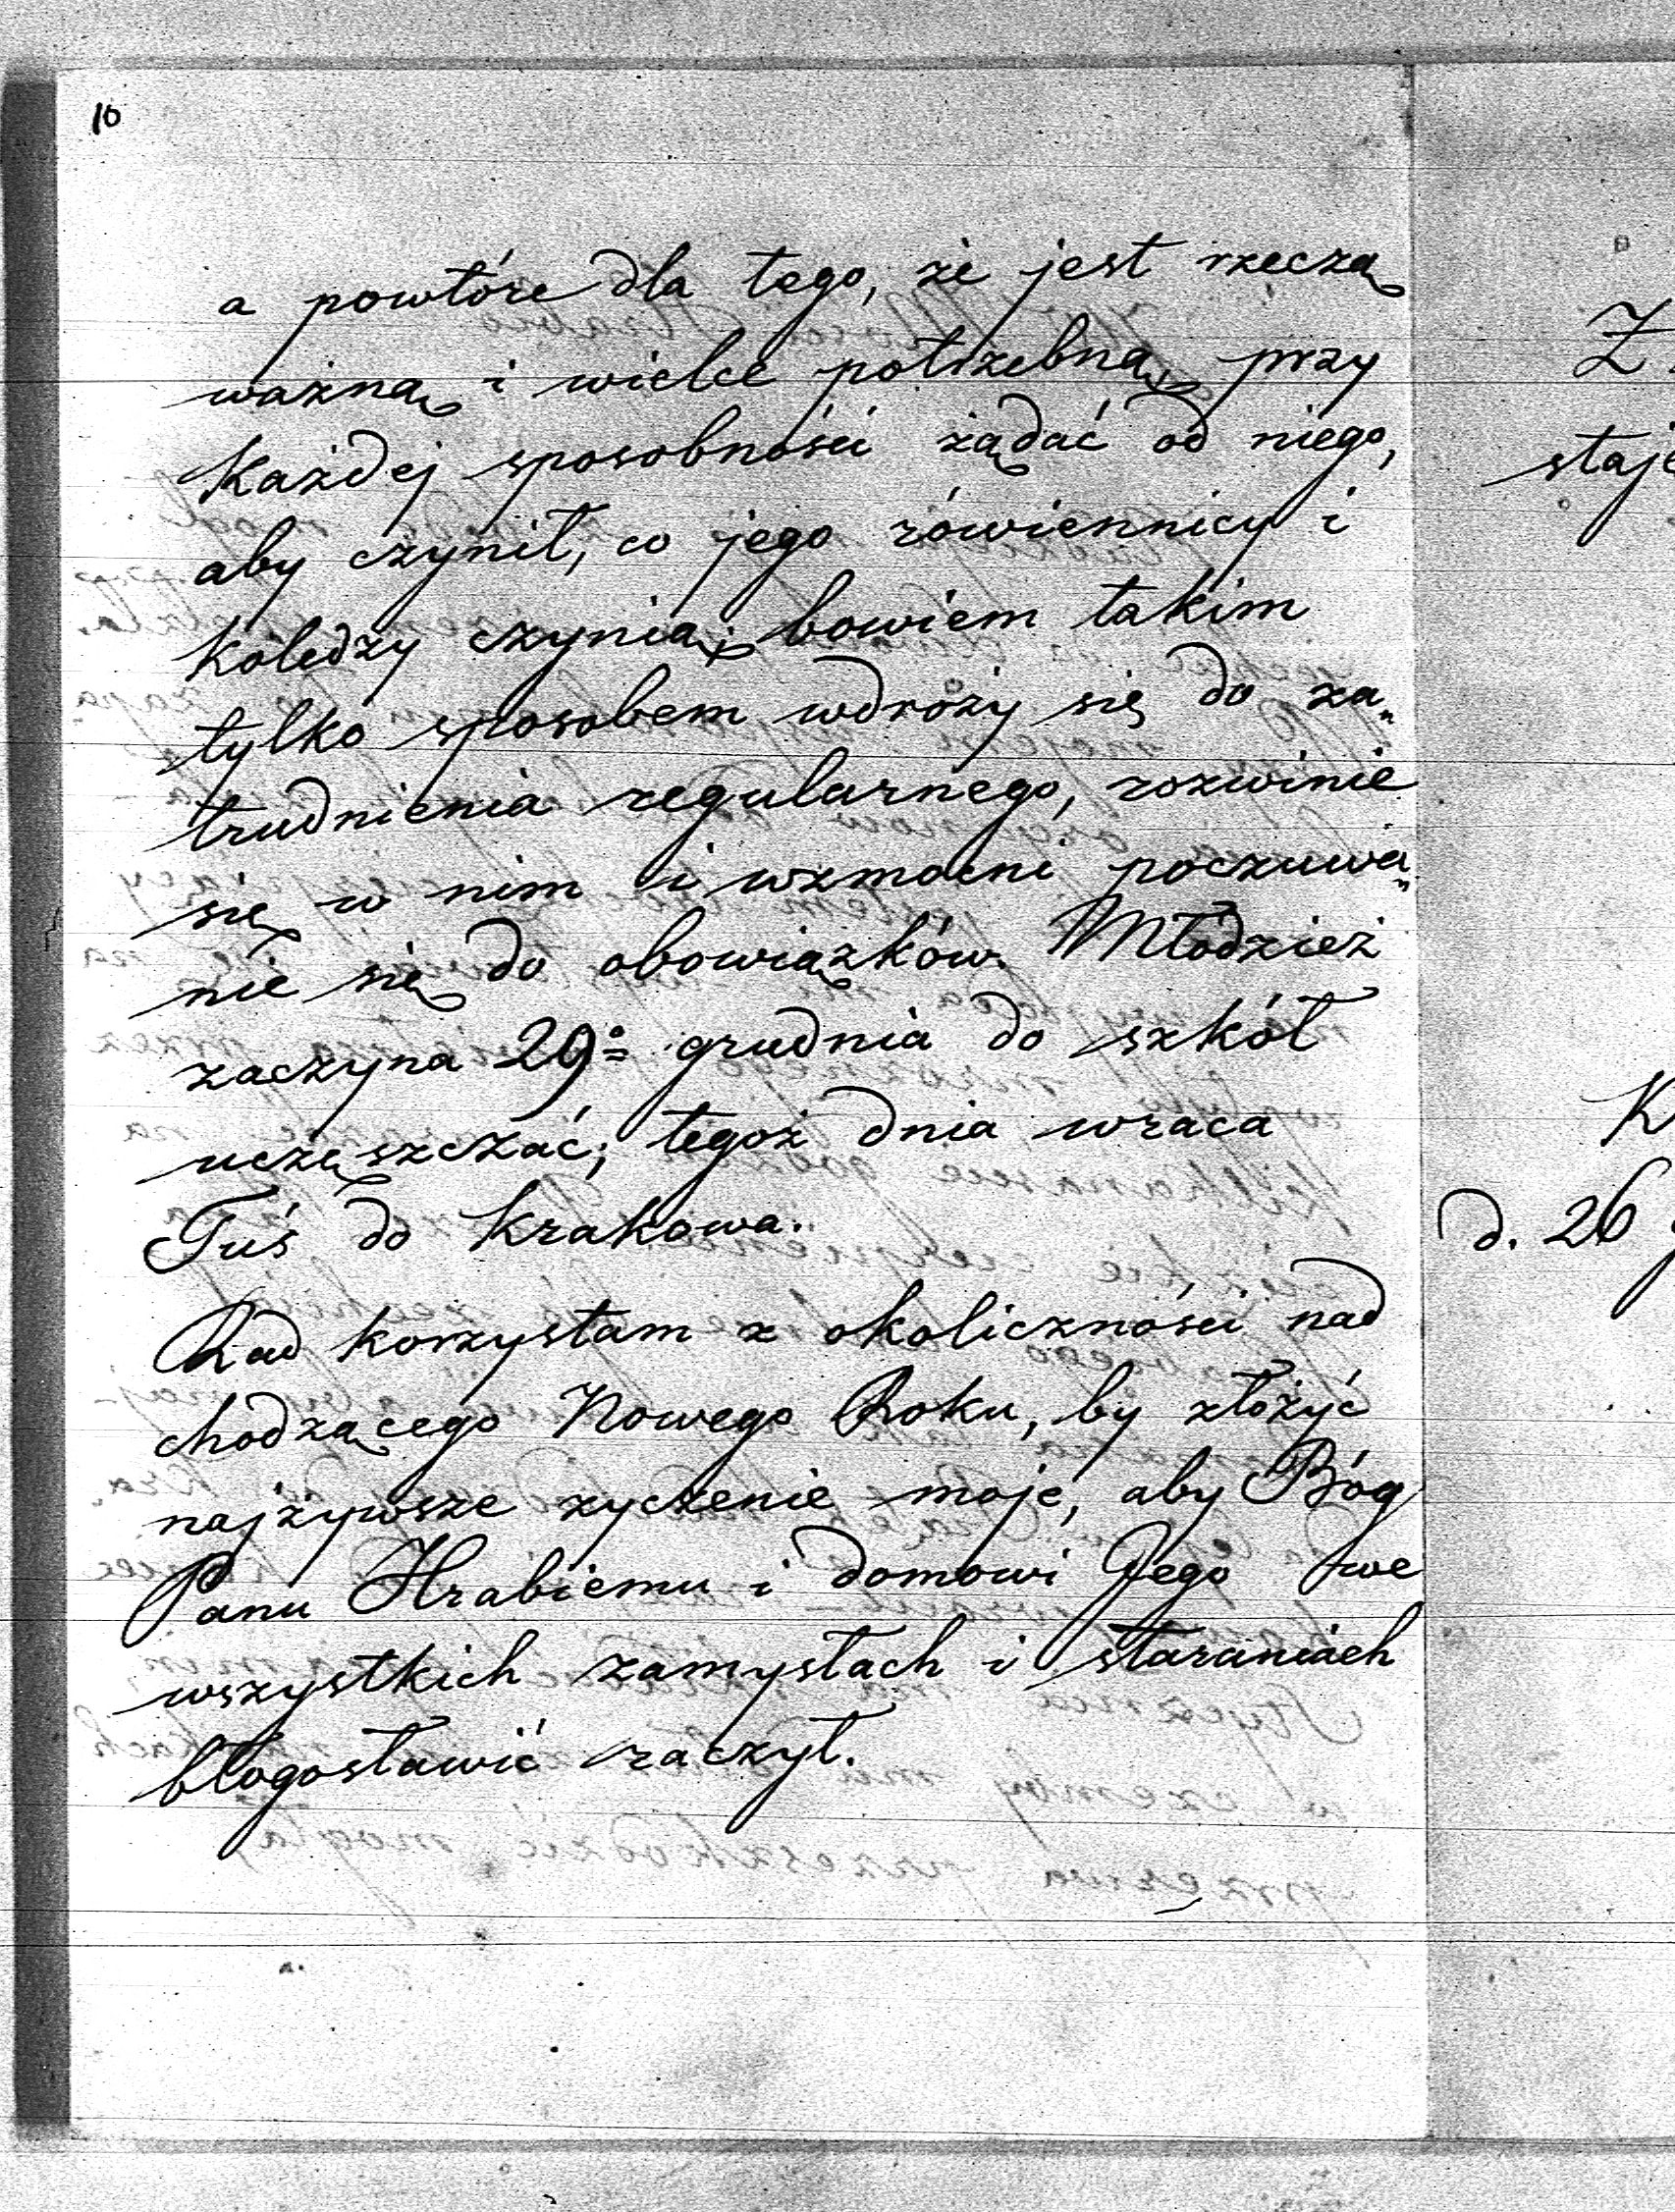 10
a powtóre dla tego, że jest rzeczą
ważną i wielce potrzebną, przy
każdej sposobności żądać od niego,
aby czynił, co jego rówiennicy i
koledzy czynią; bowiem takim
tylko sposobem wdroży się do za„
trudnienia regularnego, rozwinie
się w nim i wzmocni poczuwa„
nie się do obowiązków. Młodzież
zaczyna 29º grudnia do szkół
uczęszczać; tegoż dnia wraca
Tuś do Krakowa.
Rad korzystam z okoliczności nad
chodzącego Nowego Roku, by złożyć
najżywsze życzenie moje, aby Bóg
Panu Hrabiemu i domowi Jego we
wszystkich zamysłach i staraniach
błogosławić raczył.
Z
staje
K
d. 26